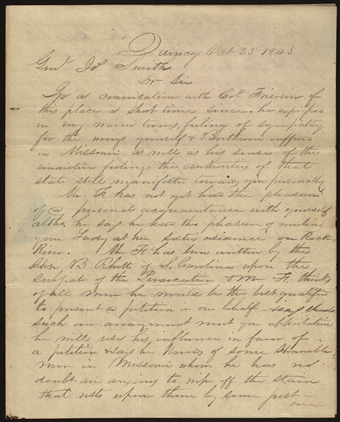 Quincy Oct 23d 1843
Genl Jos Smith
Dr Sir
In a conversation with Col. Frierson of
this place a short time since he expressed
in very warm terms, feelings of sympathy
for the wrongs yourself & Brethren suffered
in Missouri as well as his sense of the
feelings, the authorities of that
state still manifests towards you personally
Mr Fr has not yet had the pleasure
of a personal acquaintance with yourself
altho he say he has the pleasure of meeting
your Lady at his residence on Rock
River. Mr Fr has been written by the
Hon R B Rhett of S. Carolina upon the
subject of the Persecution & Mr F. thinks
of all men he would be the best qualified
to present a petition in our behalf & says should
such an arrangement meet your approbation
he will use his influence in favor of
a petition & says he knows of some Honorable
men in Missouri whom he has no
doubt are anxious to wipe off the stain
that rests upon them by some past